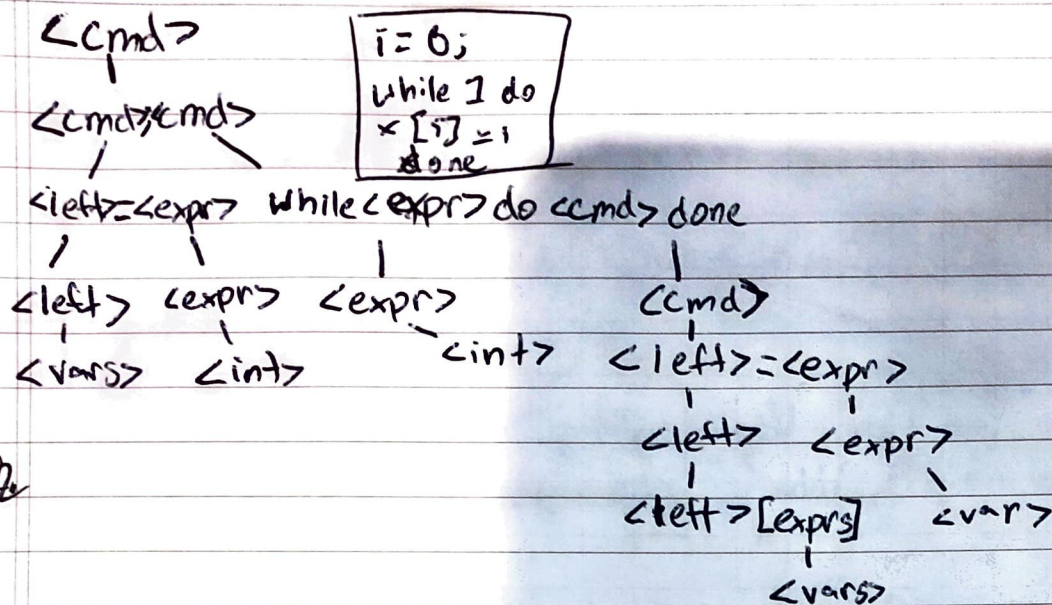 <cmd>
i = 0;
while 1 do
x [i] = i
done
<cmd>;<cmd>
<left>=<expr> while <expr> do <cmd> done
<left> <expr> <expr> <cmd>
<vars> <int> <int> <left>=<expr>
<left> <expr>
<left>[exprs] <var>
<vars>